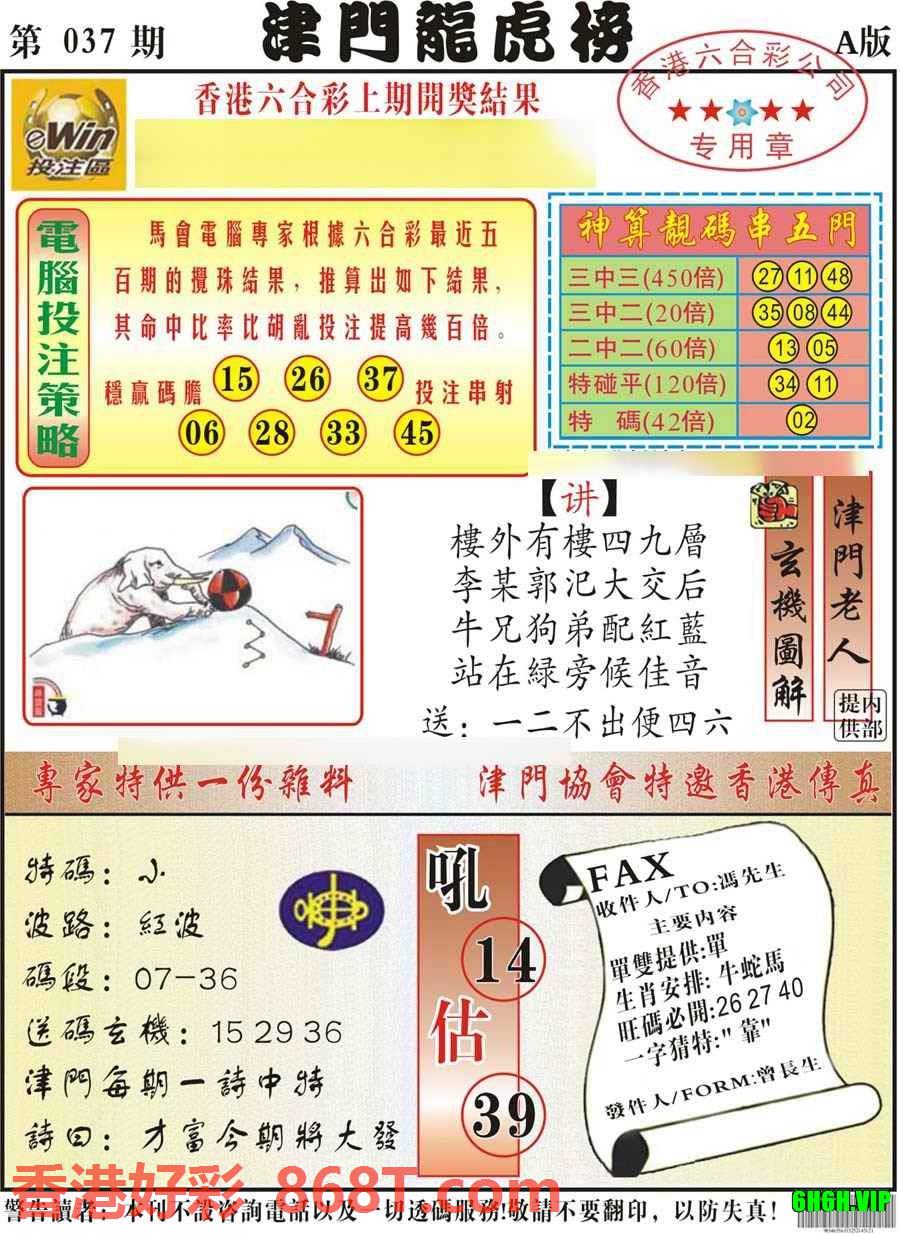 第 037 期
津門龍虎榜
A版
eWin
投注區
香港六合彩上期開獎結果
香港六合彩公司
★★★★
专用章
電腦投注策略
馬會電腦專家根據六合彩最近五
百期的攪珠結果，推算出如下結果，
其命中比率比胡亂投注提高幾百倍。
穩贏碼膽 15 26 37 投注串射
06 28 33 45
神算靚碼串五門
三中三(450倍) 27 11 48
三中二(20倍) 35 08 44
二中二(60倍) 13 05
特碰平(120倍) 34 11
特 碼(42倍) 02
【讲】
樓外有樓四九層
李某郭汜大交后
牛兄狗弟配紅藍
站在緑旁候佳音
送：一二不出便四六
玄機圖解
津門老人
内部提供
專家特供一份雜料
津門協會特邀香港傳真
特碼：小
波路：紅波
碼段：07-36
送碼玄機：15 29 36
津門每期一詩中特
詩曰：才富今期將大發
吼
14
估
39
FAX
收件人/TO:馮先生
主要内容
單雙提供:單
生肖安排:牛蛇馬
旺碼必開:26 27 40
一字猜特:"靠"
發件人/FORM:曾長生
香港好彩 868T.com
警告讀者：本刊不設咨詢電話以及一切透碼服務!敬請不要翻印，以防失真!
6H6H.VIP